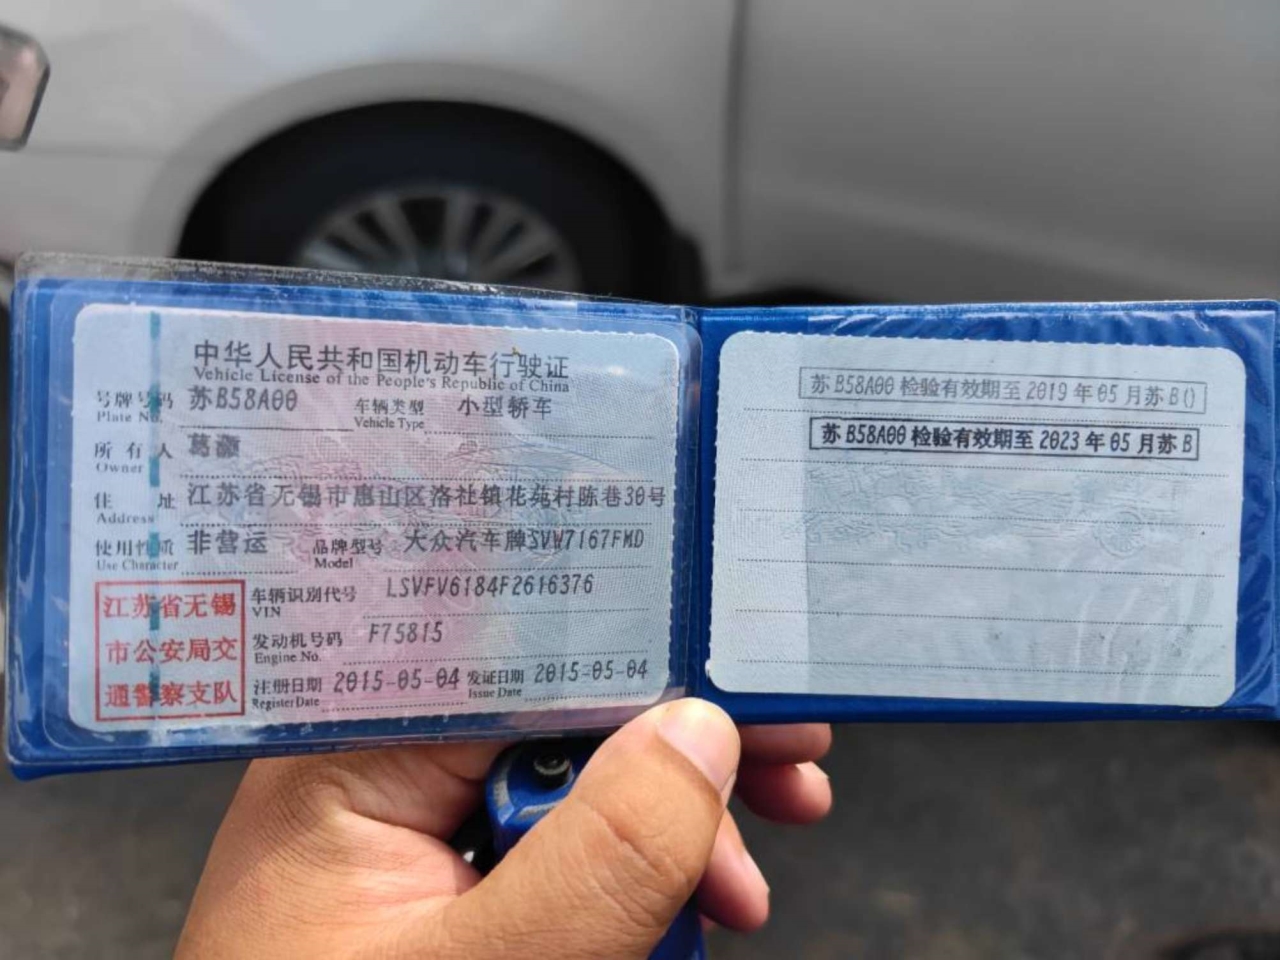 中华人民共和国机动车行驶证
Vehicle License of the People's Republic of China
号牌号码 苏B58A00 车辆类型 小型轿车
Plate No. Vehicle Type
所有人 葛灏
Owner
住址 江苏省无锡市惠山区洛社镇花苑村陈巷30号
Address
使用性质 非营运 品牌型号 大众汽车牌SVW7167FMD
Use Character Model
江苏省无锡
市公安局交
通警察支队
车辆识别代号 LSVFV6184F2616376
VIN
发动机号码 F75815
Engine No.
注册日期 2015-05-04 发证日期 2015-05-04
Register Date Issue Date
苏B58A00检验有效期至2019年05月苏B()
苏B58A00检验有效期至2023年05月苏B